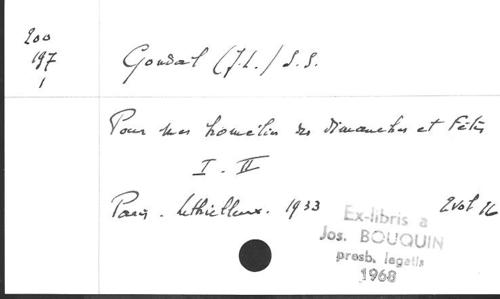 200
197
1
Gondal (J.L.) S.S.
Pour mes homélies des dimanches et Fêtes
I. II
Paris. Lethielleux. 1933 2 vol 16
Ex-libris a
Jos. BOUQUIN
presb. legatis
1968